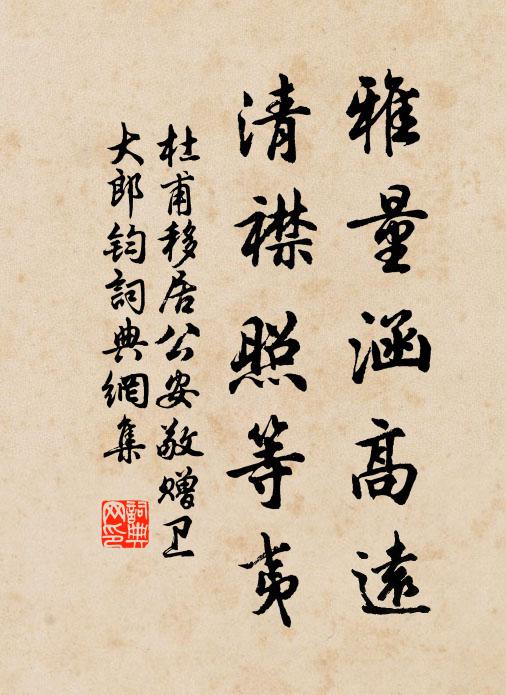 雅量涵高遠
清襟照等夷
杜甫移居公安敬赠卫
大郎鈞詞典網集
詞典
网印